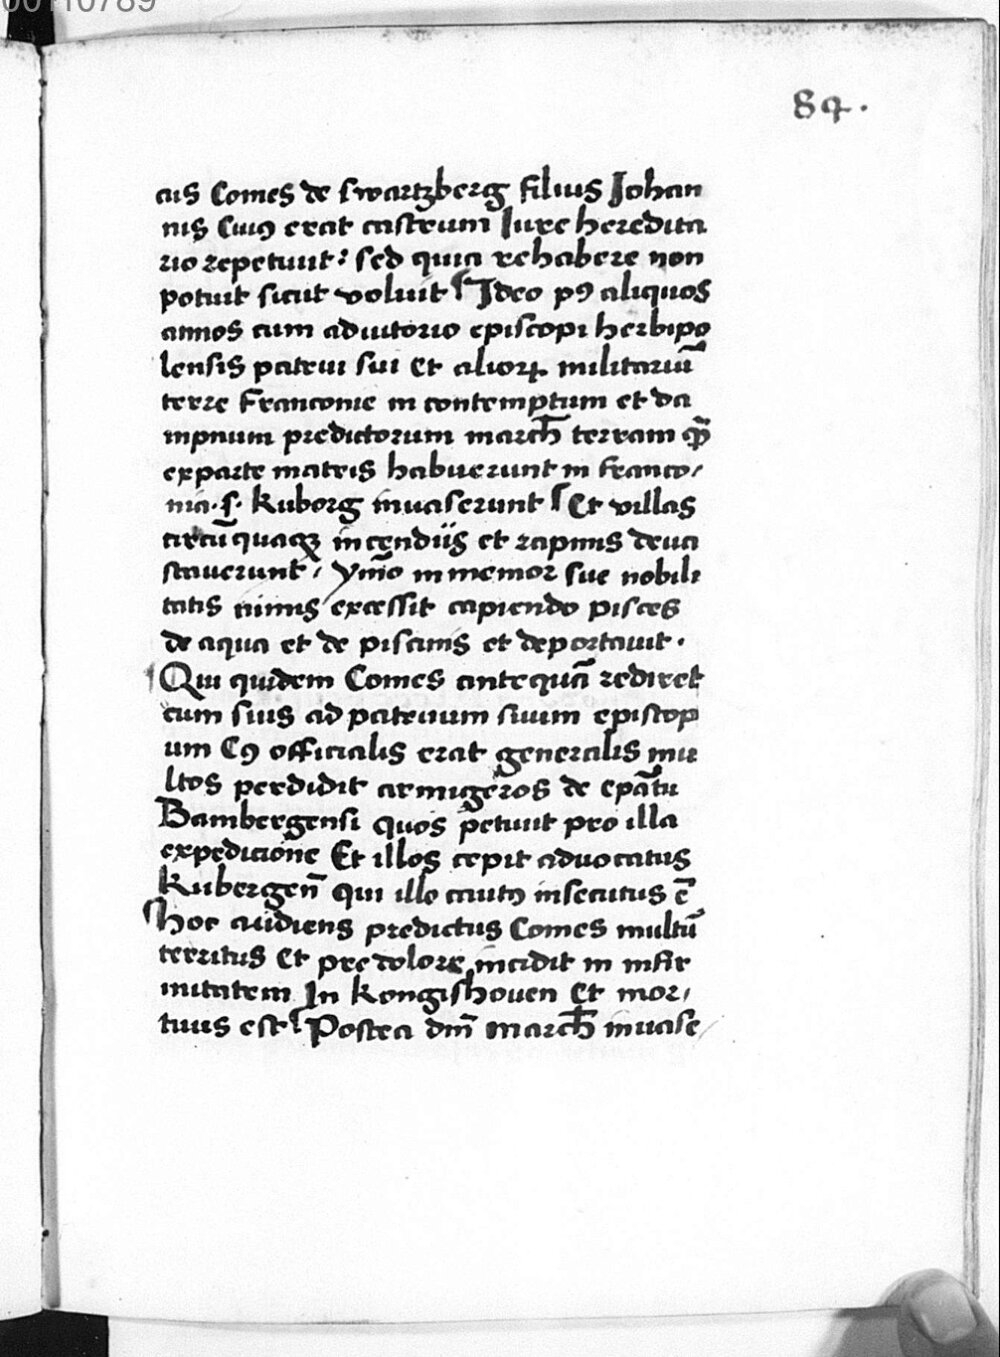 00110789
84.
cus Comes de swartzberg filius Johan
nis Cuiꝰ erat castrum Iure heredita
rio repetiuit: sed quia rehabere non
potuit sicut voluit Ideo pꝰ aliquos
annos cum adiutorio episcopi herbipo
lensis patrui sui Et alioꝝ militariū
terre Franconie in contemptum et da
mpnum predictorum march̄ terram qᷓ
exparte matris habuerunt in franco/
nia. s. Kuborg inuaserunt Et villas
circū quaqꝫ incendiis et rapinis deua
stauerunt / ymo inmemor sue nobili
tatis nimis excessit capiendo pisces
de aqua et de piscinis et deportauit.
Qui quidem Comes antequā rediret
cum suis ad patruum suum episcop
um Cꝰ officialis erat generalis mu
ltos perdidit armigeros de ep̄atu
Bambergensi quos petiuit pro illa
expedicione Et illos cepit aduocatus
Kubergen̄ qui illo cautꝰ insecutus ē
hoc audiens predictus Comes multū
territus Et pre dolore incidit in infir
mitatem In Kongishouen Et mor/
tuus est Postea dm̄ march̄ inuase/